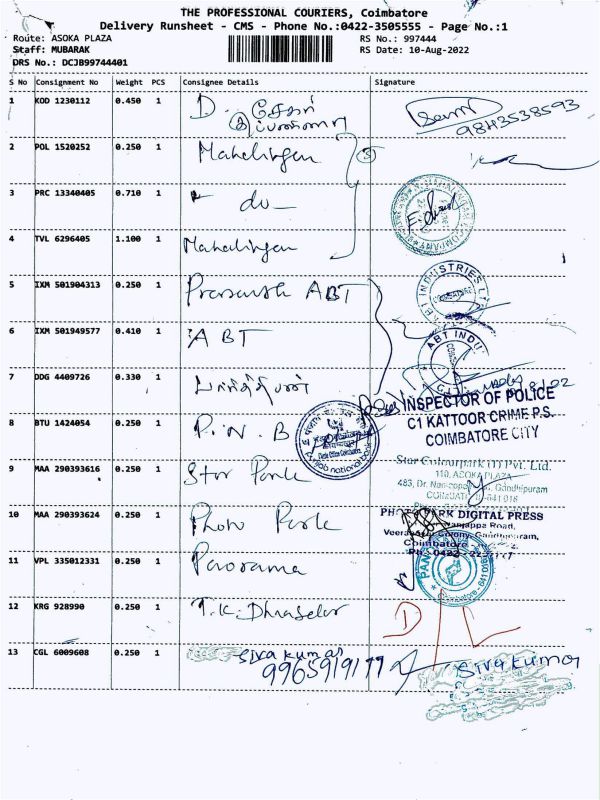 THE PROFESSIONAL COURIERS, Coimbatore
Delivery Runsheet - CMS - Phone No.:0422-3505555 - Page No.:1
Route: ASOKA PLAZA
RS No.: 997444
Staff: MUBARAK
RS Date: 10-Aug-2022
DRS No.: DCJB99744401
S No Consignment No Weight PCS Consignee Details Signature
1 KOD 1230112 0.450 1 D. சேகர்
9843538593
2 POL 1520252 0.250 1 Mahalingam
3 PRC 13340405 0.710 1 do
4 TVL 6296405 1.100 1 Mahalingam
5 IXM 501904313 0.250 1 Prasanth ABT
ABT INDUSTRIES LTD
6 IXM 501949577 0.410 1 ABT
ABT INDU
7 DDG 4409726 0.330 1
INSPECTOR OF POLICE
C1 KATTOOR CRIME P.S.
COIMBATORE CITY
8 BTU 1424054 0.250 1 P.N.B
punjab national bank
9 MAA 290393616 0.250 1 Star Park
Star Colourpark (I) Pvt. Ltd.
110, ASOKA PLAZA
483, Dr. Gandhipuram
641 018
10 MAA 290393624 0.250 1 Photo Park
PHOTO PARK DIGITAL PRESS
Road,
Colony, Gandhipuram,
Coimbatore
11 VPL 335012331 0.250 1 Panorama
Coimbatore
12 KRG 928990 0.250 1 T.K. Dhanasekar
13 CGL 6009608 0.250 1 Siva kumar
9965919177
Siva kumar